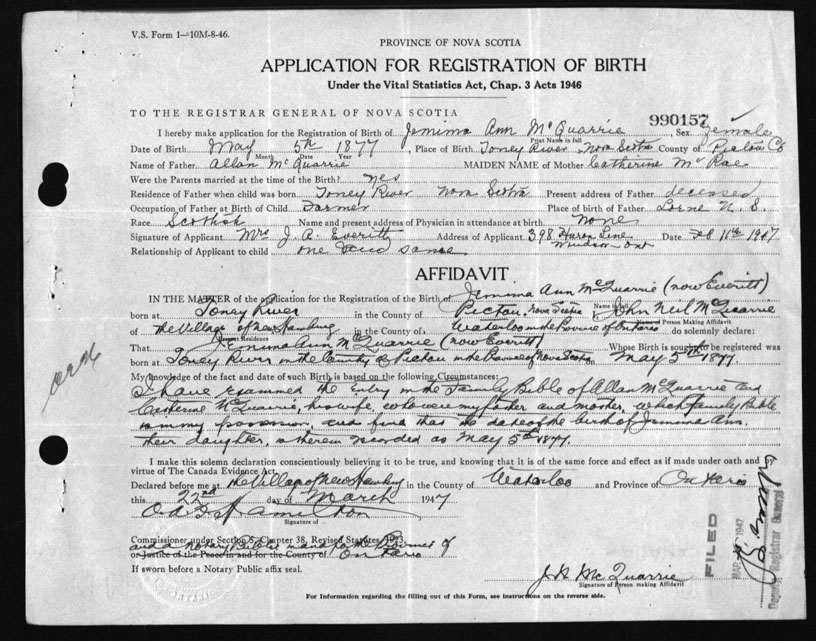 V.S. Form 1—10M-8-46.
PROVINCE OF NOVA SCOTIA
APPLICATION FOR REGISTRATION OF BIRTH
Under the Vital Statistics Act, Chap. 3 Acts 1946
TO THE REGISTRAR GENERAL OF NOVA SCOTIA
990157
I hereby make application for the Registration of Birth of Jemima Ann McQuarrie, Sex Female
Print Name in full
Date of Birth May 5th 1877, Place of Birth Toney River Nova Scotia County of Pictou Co
Month Date Year
Name of Father Allan McQuarrie MAIDEN NAME of Mother Catherine McRae
Were the Parents married at the time of the Birth? yes
Residence of Father when child was born. Toney River Nova Scotia Present address of Father deceased
Occupation of Father at Birth of Child Farmer Place of birth of Father Lorne N. S.
Race Scottish Name and present address of Physician in attendance at birth none
Signature of Applicant Mrs J. A. Everitt Address of Applicant 398 Huron Line Windsor Ont Date Feb 11th 1947
Relationship of Applicant to child one and same
AFFIDAVIT
IN THE MATTER of the application for the Registration of the Birth of Jemima Ann McQuarrie (now Everitt)
born at Toney River in the County of Pictou, Nova Scotia John Neil McQuarrie
Name in full
of the Village of New Hamburg in the County of Waterloo in the Province of Ontario do solemnly declare:
Present Residence of Person Making Affidavit
That Jemima Ann McQuarrie (now Everitt) Whose Birth is sought to be registered was
born at Toney River in the County of Pictou in the Province of Nova Scotia on May 5th 1877
My knowledge of the fact and date of such Birth is based on the following Circumstances:
I have examined the entry in the Family Bible of Allan McQuarrie and
Catherine McQuarrie, his wife, who were my father and mother, which family Bible
is in my possession, and find that the date of the birth of Jemima Ann,
their daughter, is therein recorded as May 5th 1877.
I make this solemn declaration conscientiously believing it to be true, and knowing that it is of the same force and effect as if made under oath and by
virtue of The Canada Evidence Act.
Declared before me at the Village of New Hamburg in the County of Waterloo and Province of Ontario
this 22nd day of March 1947
Hamilton
Signature of
Commissioner under Section 5, Chapter 38, Revised Statutes 1923,
and a Notary Public in and for the Province of
or Justice of the Peace in and for the County of Ontario
If sworn before a Notary Public affix seal.
J. N. McQuarrie
Signature of Person making Affidavit
For Information regarding the filling out of this Form, see instructions on the reverse side.
FILED
MAR 1947
Deputy Registrar General